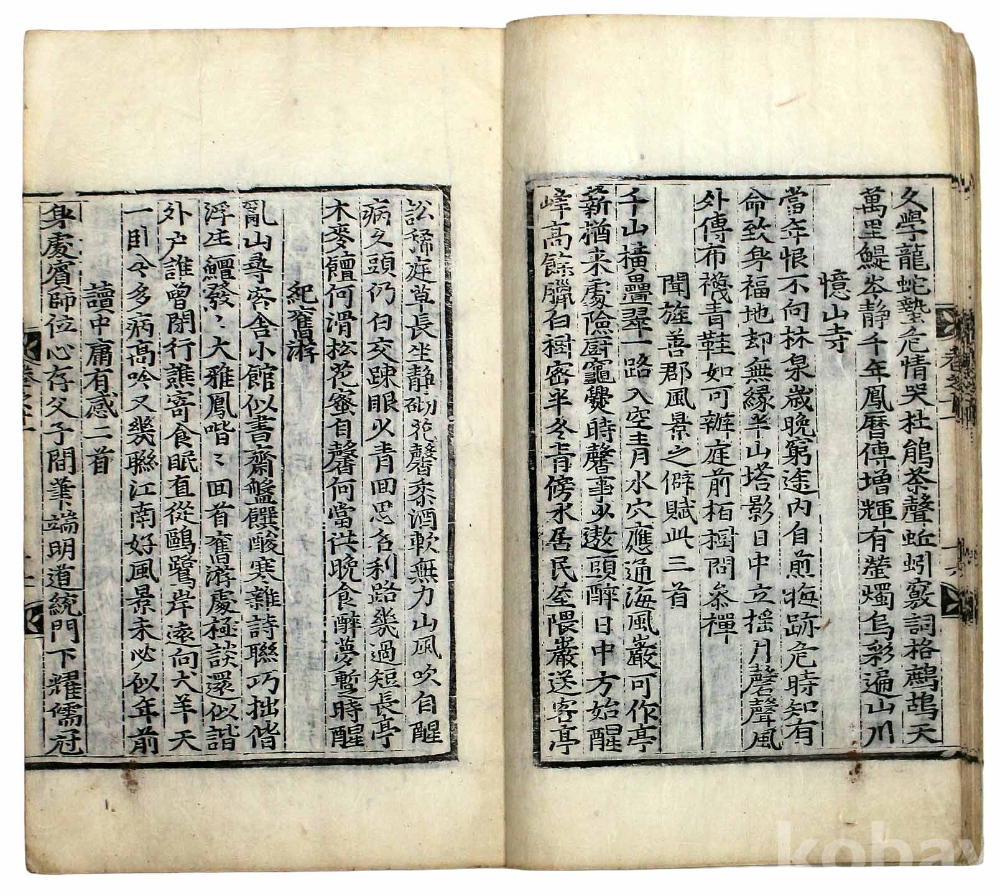 久學龍蛇蟄危情哭杜鵑茶聲蚯蚓竅詞格鷓鴣天
萬里鯷岑静千年鳳曆傳增輝有螢燭烏彩遍山川
憶山寺
當年恨不向林泉歲晚窮途内自煎海跡危時知有
命致身福地却無緣半山塔影日中立摇月磬聲風
外傳布襪青鞋如可辦庭前栢樹問叅禪
聞旌善郡風景之僻賦此三首
千山橫疊翠一路入空青水穴應通海風巖可作亭
薪槱来處險厨竈㸑時馨事少遨頭醉日中方始醒
峰高餘臘白樹密半冬青傍水居民室隈巖送客亭
訟稀庭草長坐静砌花馨柔酒軟無力山風吹自醒
病久頭仍白交踈眼少青回思名利路幾過短長亭
木麥饘何滑松花蜜自馨何當供晚食醉夢暫時醒
紀舊游
亂山尋寄舍小館似書齋盤饌酸寒雜詩聯巧拙偕
浮生鱣發〻大雅鳳喈〻回首舊游處極談還似諧
外户誰曽閉行譙寄食眠直從鷗鷺岸遠向犬羊天
一卧兮多病高吟又幾聯江南好風景未必似年前
讀中庸有感二首
身處賓師位心存父子間筆端明道統門下耀儒冠